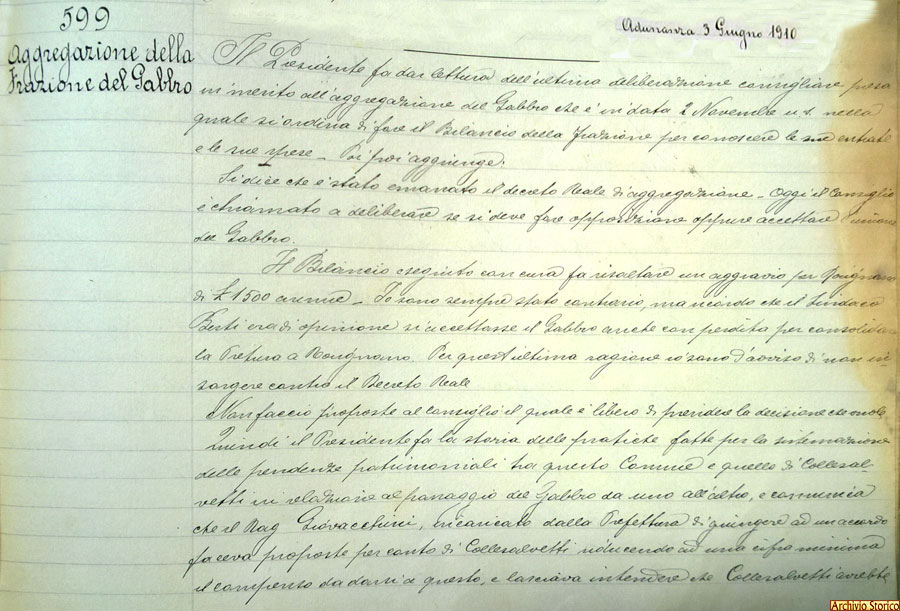 599
Aggregazione della
Frazione del Gabbro
Adunanza 3 Giugno 1910
Il Presidente fa dar lettura dell'ultima deliberazione consigliare presa
in merito all'aggregazione del Gabbro che è in data 2 Novembre u.s. nella
quale si ordina di fare il Bilancio della Frazione per conoscere le sue entrate
e le sue spese - Poi aggiunge:
Si dice che è stato emanato il decreto Reale di aggregazione - Oggi il Consiglio
è chiamato a deliberare se si deve fare opposizione oppure accettare l'unione
del Gabbro.
Il Bilancio eseguito con cura fa risaltare un aggravio per Rosignano
di £ 1500 annue - Io sono sempre stato contrario, ma ricordo che il Sindaco
Berti era di opinione si accettasse il Gabbro anche con perdita per consolidare
la Pretura a Rosignano. Per quest'ultima ragione io sono d'avviso di non in-
sorgere contro il Decreto Reale
Non faccio proposte al consiglio il quale è libero di prendere la decisione che vuole
Quindi il Presidente fa la storia delle pratiche fatte per la sistemazione
delle pendenze patrimoniali tra questo Comune e quello di Collesal-
vetti in relazione al passaggio del Gabbro da uno all'altro, e comunica
che il Rag Giovacchini, incaricato dalla Prefettura di giungere ad un accordo
faceva proposte per conto di Collesalvetti riducendo ad una cifra minima
il compenso da darsi a questo, e lasciava intendere che Collesalvetti avrebbe
Archivio Storico